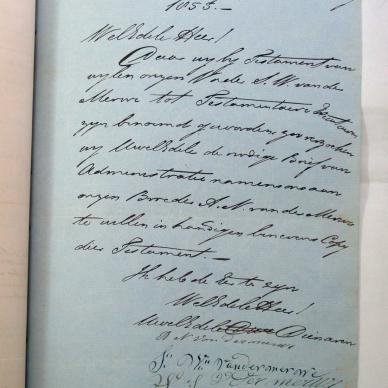 1855.—
WelEdele Heer!
Daar wy by Testament van
wylen onzen Vader S. W. van de
Merwe tot Testamentaire Executeuren
zyn benoemd geworden, zoo verzoeken
wy UwelEdele de nodige Brief van
Administratie namens ons aan
onzen Broeder A. N. van der Merwe
te willen inhandigen benevens Copy
dies Testament.—
Ik heb de Eer te zyn
WelEdele Heer!
UwelEdele Dienaren
van der merwe
van der merwe